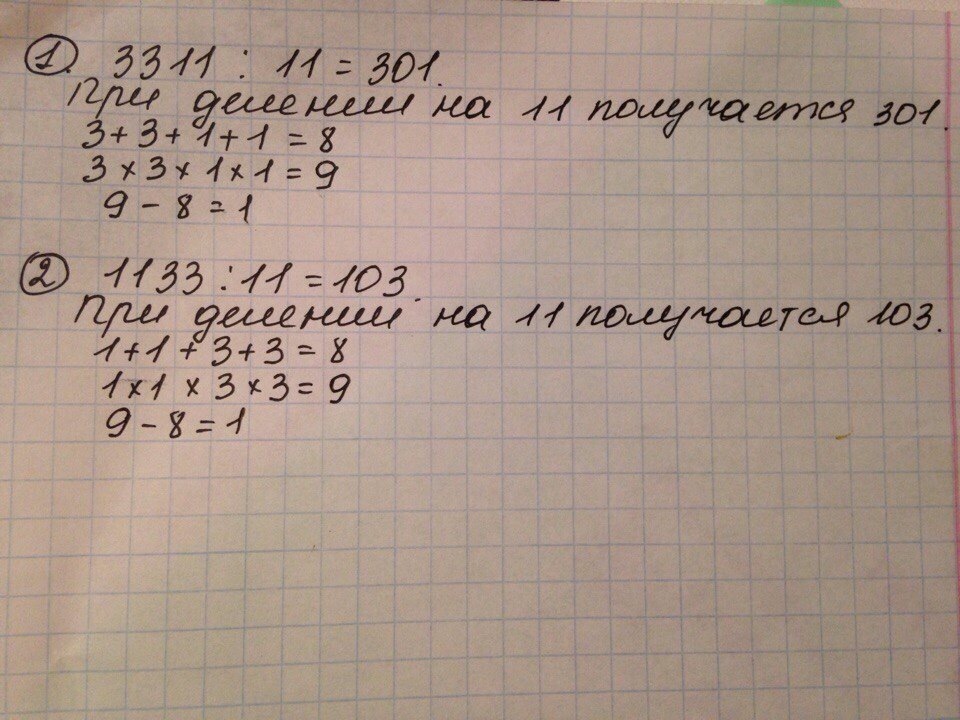 1. 3311 : 11 = 301.
При делении на 11 получается 301.
3 + 3 + 1 + 1 = 8
3 × 3 × 1 × 1 = 9
9 - 8 = 1
2 1133 : 11 = 103.
При делении на 11 получается 103.
1 + 1 + 3 + 3 = 8
1 × 1 × 3 × 3 = 9
9 - 8 = 1